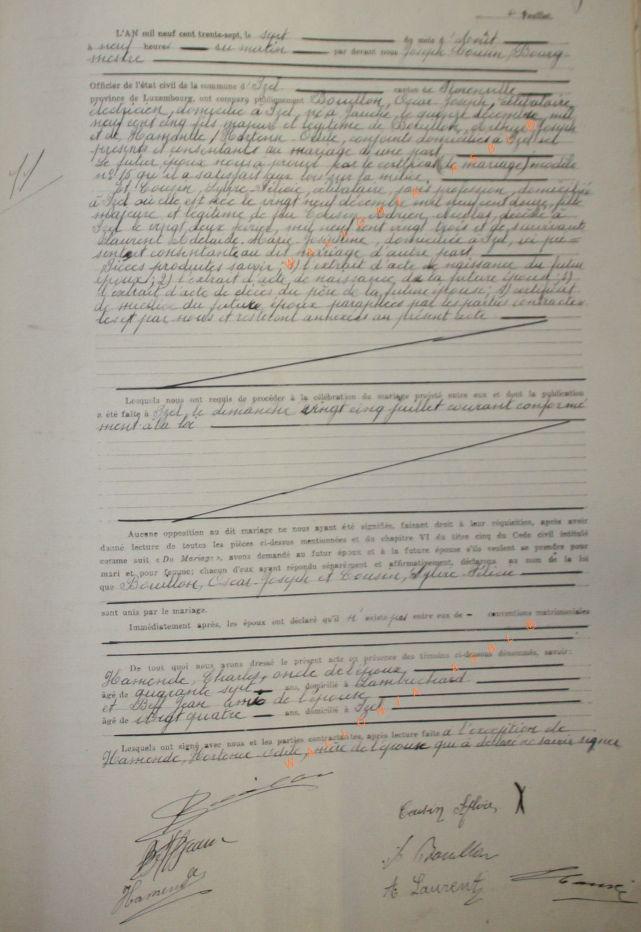 4 Feuillet.
L'AN mil neuf cent trente-sept, le sept du mois d'Août
à neuf heures du matin par devant nous Joseph Cousin, Bourg-
mestre
Officier de l'état civil de la commune d'Izel canton de Florenville
province de Luxembourg, ont comparu publiquement Bouillon, Oscar-Joseph, célibataire,
électricien, domicilié à Izel, né à le quinze décembre mil
neuf cent cinq fils majeur et légitime de Bouillon, Joseph
et de Hamende, Hortense Odile, conjoints domiciliés à Izel ici
présents et consentants au mariage d'une part
Le futur époux nous a prouvé par le certificat de mariage, modèle
n° 15 qu'il a satisfait aux lois sur la milice.
Et Cousin, Sylvie Félicie, célibataire, sans profession, domiciliée
à Izel où elle est née le vingt neuf décembre mil neuf cent douze, fille
majeure et légitime de feu Cousin, Adrien, Nicolas, décédé à
Izel le vingt deux février, mil neuf cent vingt trois et de survivante
Laurent Adélaïde, Marie Joséphine, domiciliée à Izel, ici pré-
sente et consentante au dit mariage d'autre part
Pièces produites savoir, 1) l'extrait d'acte de naissance du futur
époux; 2) l'extrait d'acte de naissance de la future épouse; 3)
l'extrait d'acte de décès du père de la future épouse; 4) certificat
de milice du futur époux paraphées par les parties contractan
tes et par nous et resteront annexées au présent acte
11
Lesquels nous ont requis de procéder à la célébration du mariage projeté entre eux et dont la publication
a été faite à Izel, le dimanche vingt cinq juillet courant conformé
ment à la loi
Aucune opposition au dit mariage ne nous ayant été signifiée, faisant droit à leur réquisition, après avoir
donné lecture de toutes les pièces ci-dessus mentionnées et du chapitre VI du titre cinq du Code civil intitulé
comme suit « Du Mariage », avons demandé au futur époux et à la future épouse s'ils veulent se prendre pour
mari et pour femme; chacun d'eux ayant répondu séparément et affirmativement, déclarons au nom de la loi
que Bouillon, Oscar-Joseph et Cousin, Sylvie Félicie
sont unis par le mariage.
Immédiatement après, les époux ont déclaré qu'il n'existe pas entre eux de conventions matrimoniales
De tout quoi nous avons dressé le présent acte en présence des témoins ci-dessous dénommés, savoir:
Hamende, Charles, oncle de l'époux,
âgé de quarante sept ans, domicilié à Lambuchard
et Biff Jean ami de l'épouse
âgé de vingt quatre ans, domicilié à Izel
Lesquels ont signé avec nous et les parties contractantes, après lecture faite à l'exception de
Hamende, Hortense Odile, mère de l'époux qui a déclaré ne savoir signer
Bouillon
Cousin Sylvie
Biff Jean
J Bouillon
Hamende
A Laurent
Cousin